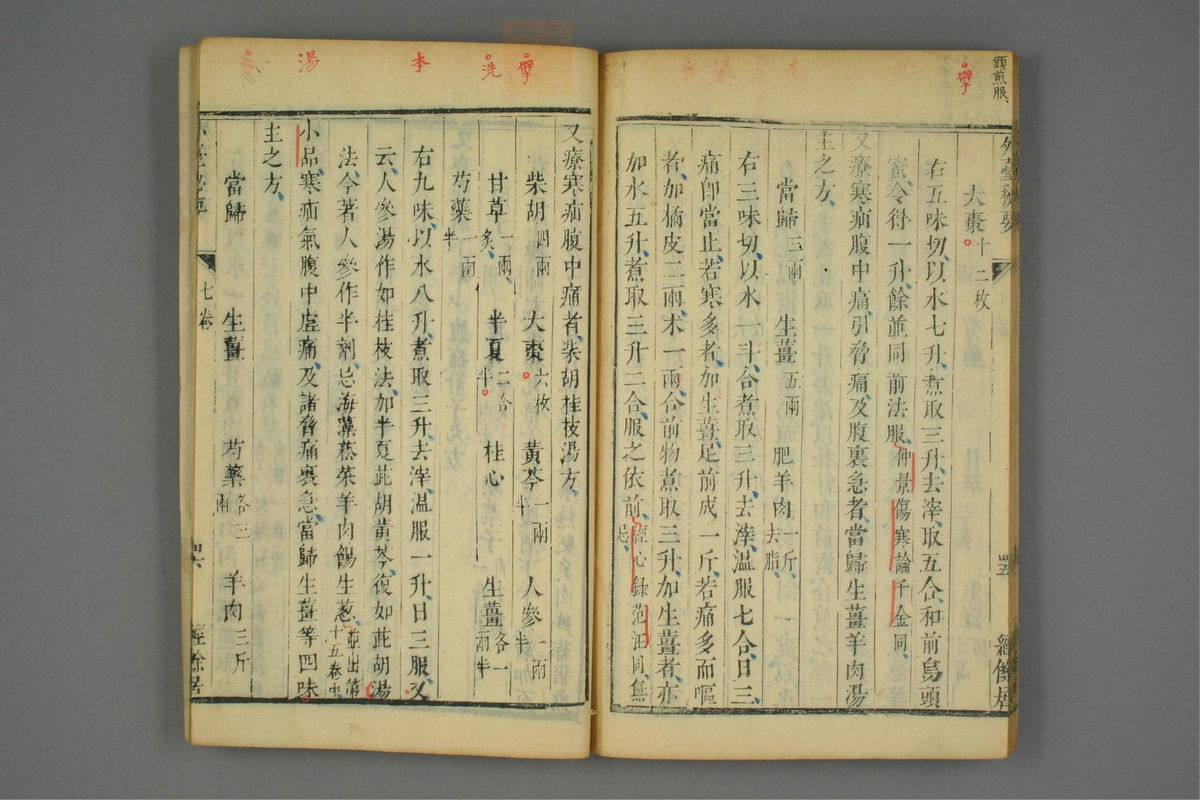 頭煎服
擘
大棗十二枚
右五味切以水七升煮取三升去滓取五合和前烏頭
蜜令得一升餘並同前法服仲景傷寒論千金同
又療寒疝腹中痛引脅痛及腹裏急者當歸生薑羊肉湯
主之方
當歸三兩 生薑五兩 肥羊肉一斤去脂
右三味切以水一斗合煮取三升去滓温服七合日三
痛即當止若寒多者加生薑足前成一斤若痛多而嘔
者加橘皮二兩术一兩合前物煮取三升加生薑者亦
加水五升煮取三升二合服之依前經心録范汪同無忌
外臺秘要
四五
經餘居
擘
洗
本
湯
又療寒疝腹中痛者柴胡桂枝湯方
柴胡四兩 大棗六枚 黃芩一兩半 人參一兩半
甘草一兩炙 半夏二合半 桂心 生薑各一兩半
芍藥一兩半
右九味以水八升煮取三升去滓温服一升日三服又
云人參湯作如桂枝法加半夏茈胡黃芩復如茈胡湯
法今著人參作半劑忌海藻菘菜羊肉餳生葱並出第十五卷中
小品寒疝氣腹中虛痛及諸脅痛裏急當歸生薑等四味
主之方
當歸 生薑 芍藥各三兩 羊肉三斤
七卷
四六
經餘居